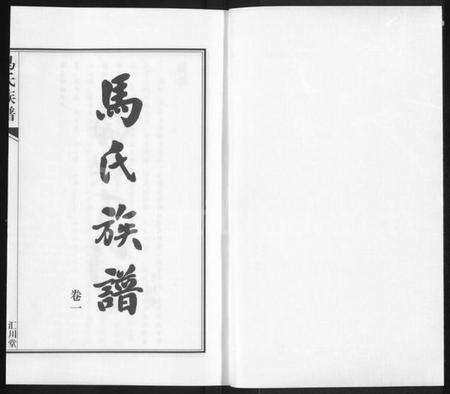 馬氏族譜
卷一
馬氏族譜
汇川堂